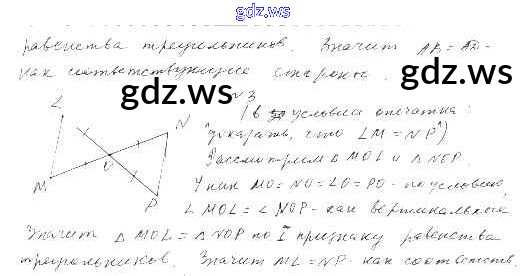 gdz.ws
равенства треугольников. Значит AB = AD -
как соответствующие стороны.
gdz.ws
gdz.ws
№3
(в условии опечатка:
L
N
"доказать, что ∠M = NP")
O
Рассмотрим △ MOL и △ NOP.
M
У них MO = NO = LO = PO - по условию,
P
∠ MOL = ∠ NOP - как вертикальные
Значит △ MOL = △ NOP по I признаку равенства
треугольников. Значит ML = NP - как соответств.